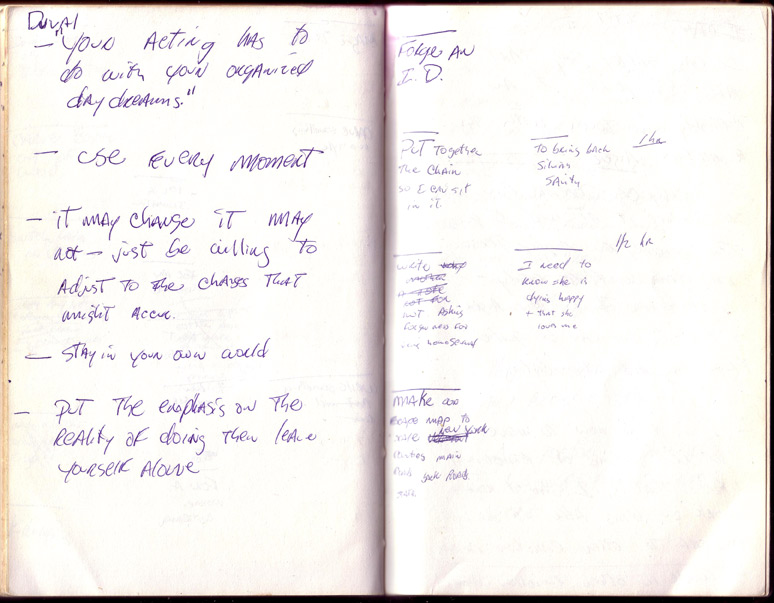 Duval
– "Your Acting has to
do with your organized
day dreams."
– use every moment
– it may change it may
not – just be willing to
Adjust to the changes that
might Accur.
– stay in your own world
– put the emphasis on the
reality of doing then leave
yourself Alone
Forge An
I.D.
Put Together
the chain
so I can sit
in it
To bring back
Sanity
1 hr
1/2 hr
write
not Asking
forgiveness for
I need to
know she is
dying happy
+ that she
loves me
make an
escape map to
New York